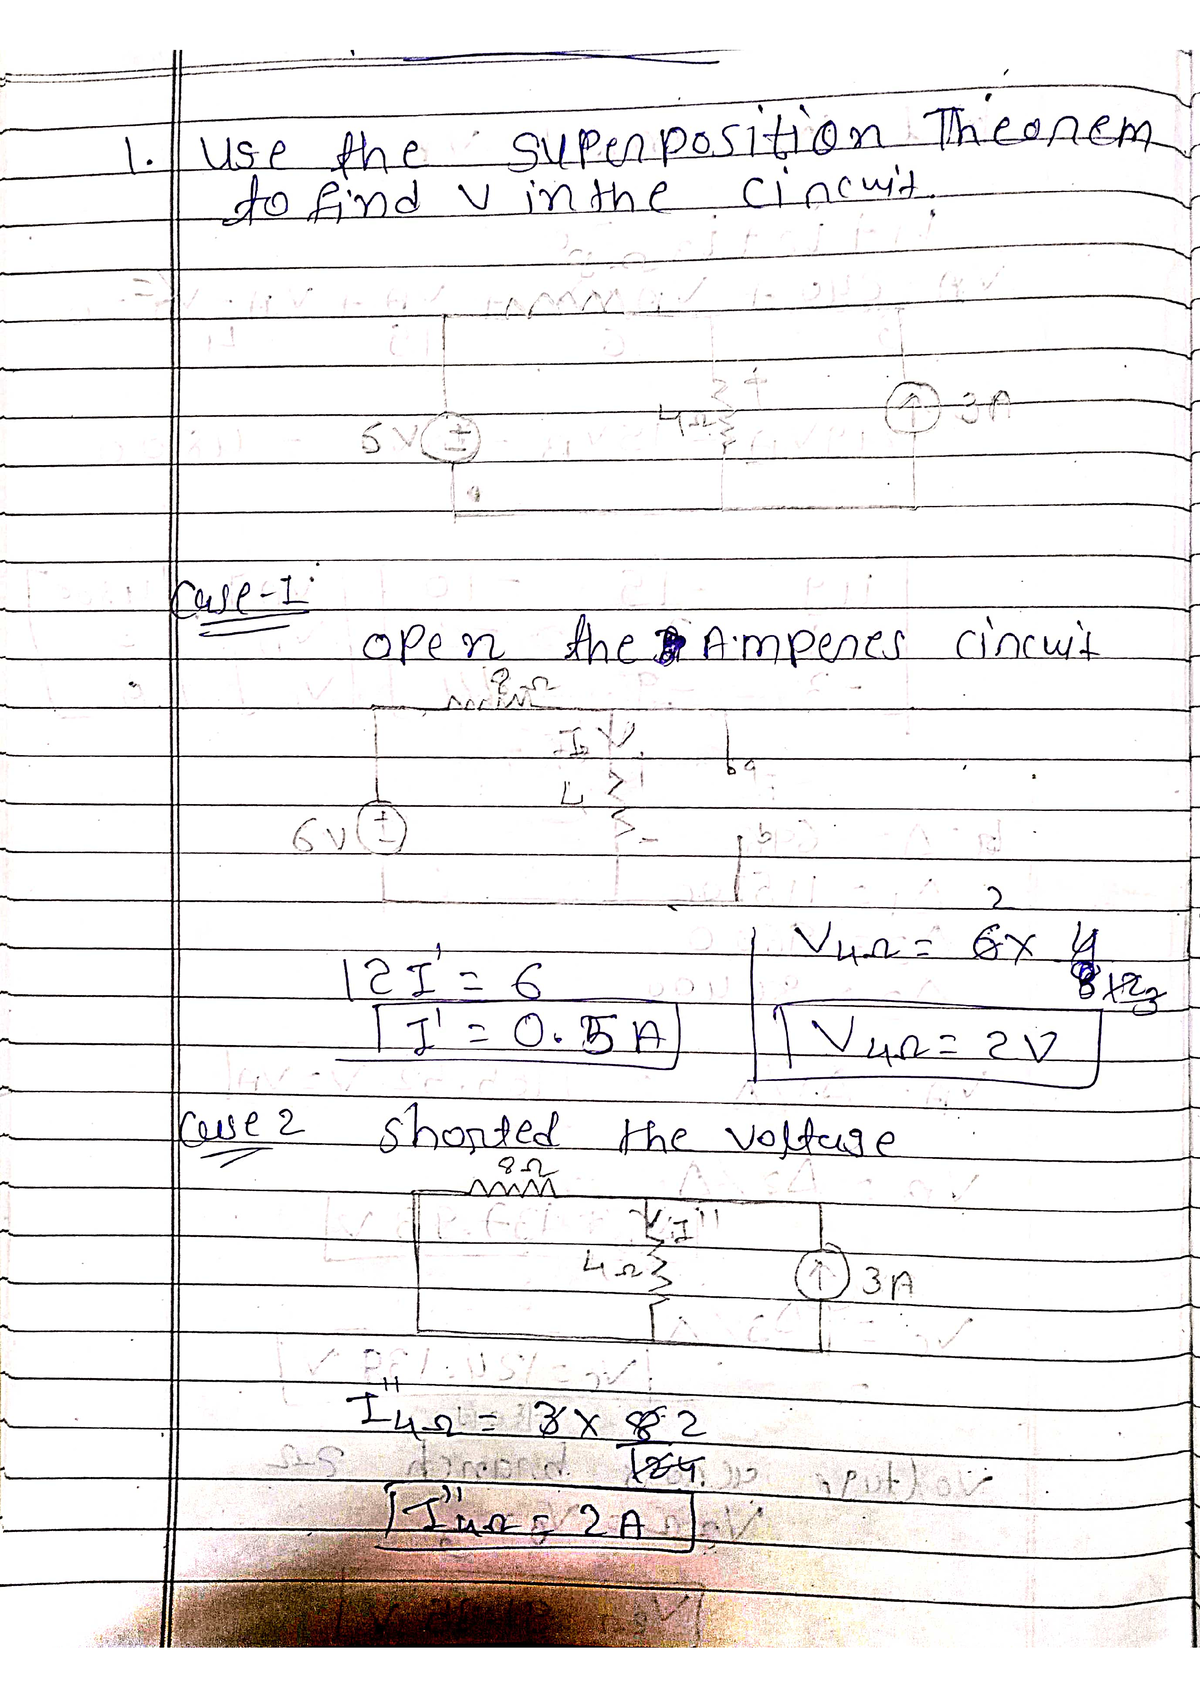 1. Use the superposition Theorem
to find V in the circuit.
6V
4Ω
+
3A
Case-1:
open the Amperes circuit
8Ω
I
4
a
6V
b
12I' = 6
I' = 0.5A
V4Ω = 6 × 4
2
V4Ω = 2V
Case 2 shorted the voltage
8Ω
I"
4Ω
3A
I"4Ω = 3 × 8 2
12 4
I"4Ω = 2A